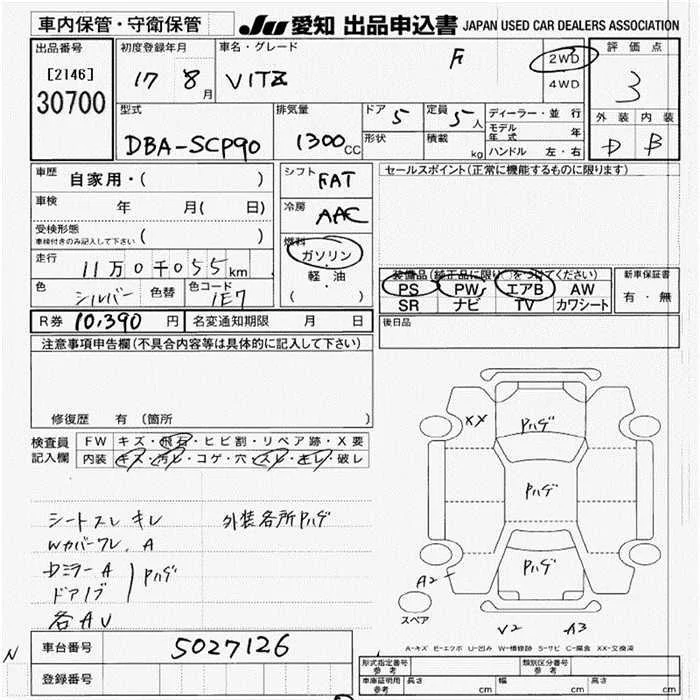 車内保管・守衛保管
JU 愛知 出品申込書 JAPAN USED CAR DEALERS ASSOCIATION
出品番号
[2146]
30700
初度登録年月
17 8月
車名・グレード
VITZ F
2WD
4WD
評価点
3
外装 内装
D B
型式
DBA-SCP90
排気量
1300cc
ドア 5
形状
定員 5人
積載 kg
ディーラー・並行
モデル年式 年
ハンドル 左・右
車歴 自家用・( )
車検 年 月( 日)
受検形態
車検付きのみ記入して下さい ( )
走行 11万0千055km
色 シルバー 色替 色コード 1E7
シフト FAT
冷房 AAC
燃料
ガソリン
軽・油
( )
セールスポイント(正常に機能するものに限ります)
装備品(純正品に限り○をつけてください)
PS PW エアB AW
SR ナビ TV カワシート
新車保証書
有・無
R券 10,390 円 名変通知期限 月 日
後日品
注意事項申告欄(不具合内容等は具体的に記入して下さい)
修復歴 有(箇所 )
検査員
記入欄
FW キズ・飛石・ヒビ割・リペア跡・X要
内装 キズ・汚レ・コゲ・穴・スレ・キレ・破レ
シートスレ キレ 外装各所Pハゲ
Wカバーワレ、A
Dミラー A
ドアノブ Pハゲ
各AU
XX
Pハゲ
Pハゲ
Pハゲ
A2
スペア
V2 A3
A-キズ E-エクボ U-凹み W-補修跡 S-サビ C-腐食 XX-交換済
N
車台番号 5027126
登録番号
形式指定番号
参考
類別区分番号
参考
車庫証明用
参考
長さ cm 幅 cm 高さ cm